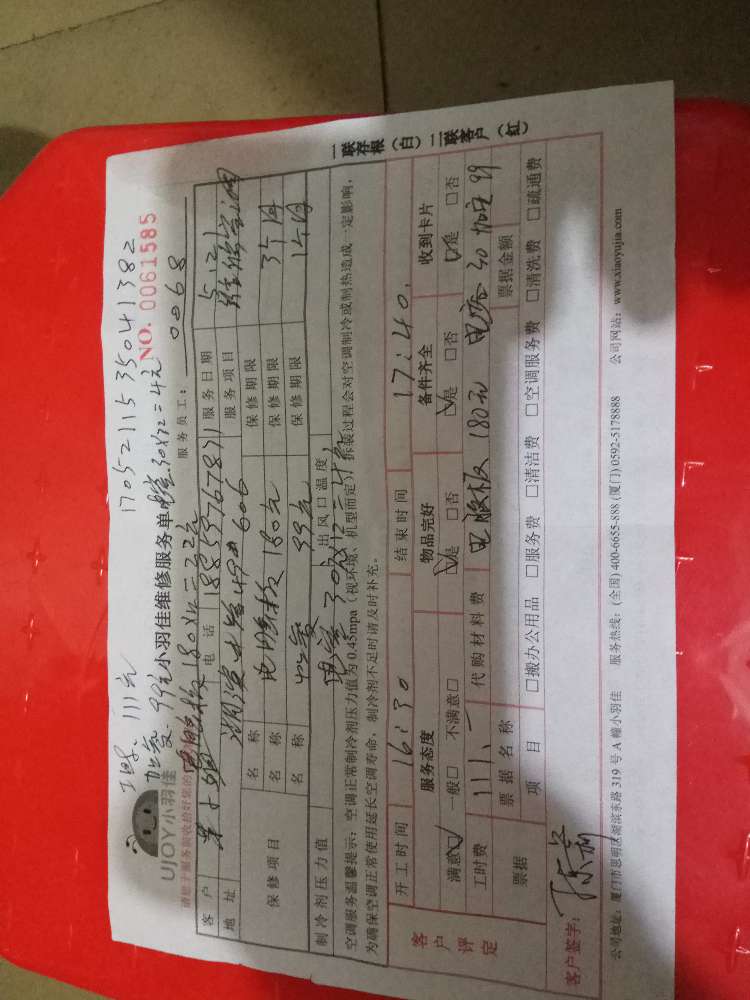 1705211535041382
工时: 111元
加氨: 99元
电容: 30X12=4元
UJOY小羽佳
小羽佳维修服务单
NO. 0061585
电脑板180X12=22元
服务员工: 0068
客户
电话 18859767871
服务日期 5.21
地址
湖滨 49# 606
服务项目
保修项目
名称 电脑板 180元 保修期限 3个月
名称 99元 保修期限 1个月
制冷剂压力值
出风口温度
空调服务温馨提示:空调正常制冷剂压力值为0.45mpa(视环境、机型而定),拆装过程会对空调制冷或制热造成一定影响,
为确保空调正常使用延长空调寿命,制冷剂不足时请及时补充。
开工时间 16:30 结束时间 17:40
客户评定
服务态度 物品完好 备件齐全 收到卡片
满意☑ 一般□ 不满意□ ☑是 □否 ☑是 □否 ☑是 □否
工时费 111.- 代购材料费 电脑板 180元 电容 30 99
票据
票据名称 票据金额
项目 □搬办公用品 □服务费 □清洁费 □空调服务费 □清洗费 □疏通费
客户签字:
公司地址:厦门市思明区湖滨东路319号A幢小羽佳 服务热线:(全国)400-6655-888 (厦门)0592-5178888 公司网站:www.xiaoyujia.com
一联存根(白)二联客户(红)